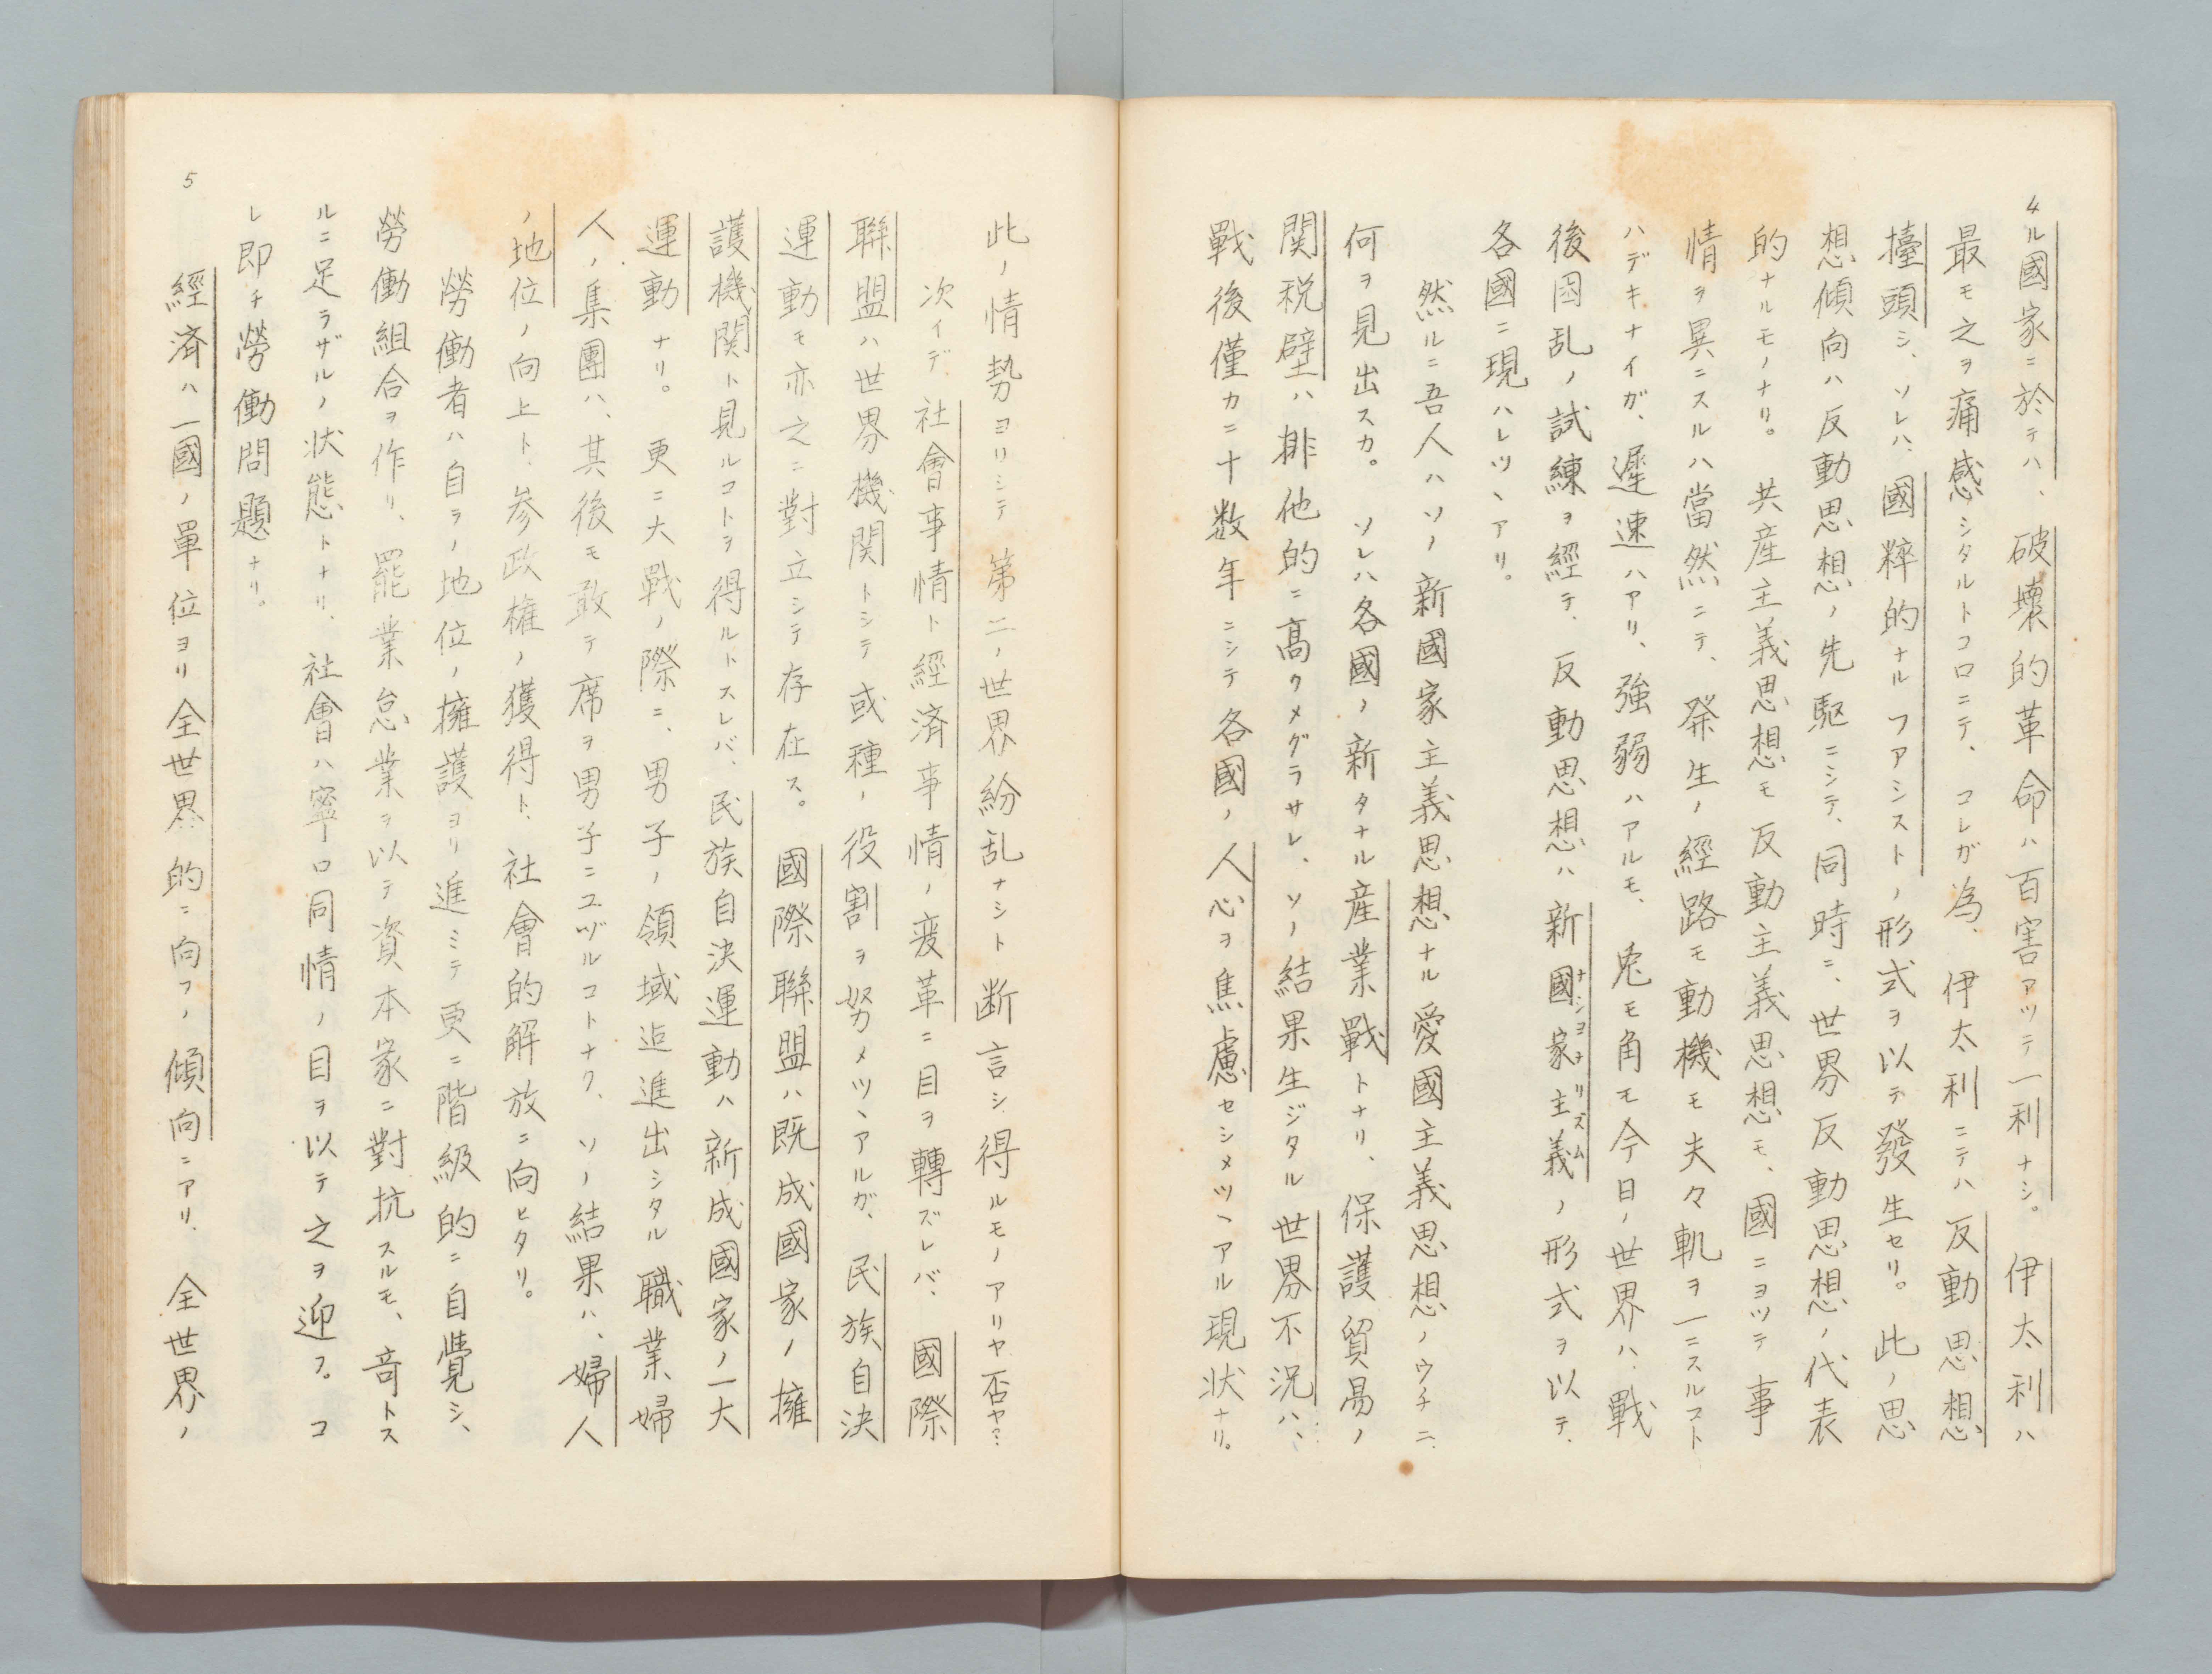 4
ル國家ニ於テハ、破壞的革命ハ百害アツテ一利ナシ。 伊太利ハ
最モ之ヲ痛感シタルトコロニテ、コレガ為、伊太利ニテハ反動思想
擡頭シ、ソレハ、國粹的ナルフアシスト、形式ヲ以テ發生セリ。 此ノ思
想傾向ハ反動思想ノ先駆ニシテ、同時ニ、世界反動思想ノ代表
的ナルモノナリ。 共産主義思想モ反動主義思想モ、國ニヨツテ事
情ヲ異ニスルハ當然ニテ、発生ノ經路モ動機モ夫々軌ヲ一ニスルスト
ハデキナイガ、遲速ハアリ、強弱ハアルモ、兎モ角モ今日ノ世界ハ、戰
後困乱ノ試練ヲ經テ、反動思想ハ新國家主義ノ形式ヲ以テ、
ナシヨナリズム
各國ニ現ハレツヽアリ。
然ルニ吾人ハソノ新國家主義思想ナル愛國主義思想ノウチニ、
何ヲ見出スカ。 ソレハ各國ノ新タナル産業戰トナリ、保護貿易ノ
関税壁ハ排他的ニ高クメグラサレ、ソノ結果生ジタル世界不況ハ、
戰後僅カニ十数年ニシテ各國ノ人心ヲ焦慮セシメツヽアル現状ナリ。
此ノ情勢ヨリシテ第二ノ世界紛乱ナシト断言シ得ルモノアリヤ否ヤ?
次イデ、社會事情ト經済事情ノ変革ニ目ヲ轉ズレバ、國際
聯盟ハ世界機関トシテ或種ノ役割ヲ努メツヽアルガ、民族自決
運動モ亦之ニ對立シテ存在ス。 國際聯盟ハ既成國家ノ擁
護機関ト見ルコトヲ得ルトスレバ、民族自決運動ハ新成國家ノ一大
運動ナリ。 更ニ大戰ノ際ニ、男子ノ領域迄進出シタル職業婦
人ノ集團ハ、其後モ敢テ席ヲ男子ニユヅルコトナク、ソノ結果ハ、婦人
ノ地位ノ向上ト、参政権ノ獲得ト、社會的解放ニ向ヒタリ。
勞働者ハ自ラノ地位ノ擁護ヨリ進ミテ更ニ階級的ニ自覺シ、
勞働組合ヲ作リ、罷業怠業ヲ以テ資本家ニ對抗スルモ、奇トス
ルニ足ラザルノ状態トナリ、社會ハ寧ロ同情ノ目ヲ以テ之ヲ迎フ。コ
レ即チ勞働問題ナリ。
經済ハ一國ノ單位ヨリ全世界的ニ向フノ傾向ニアリ、全世界ノ
5